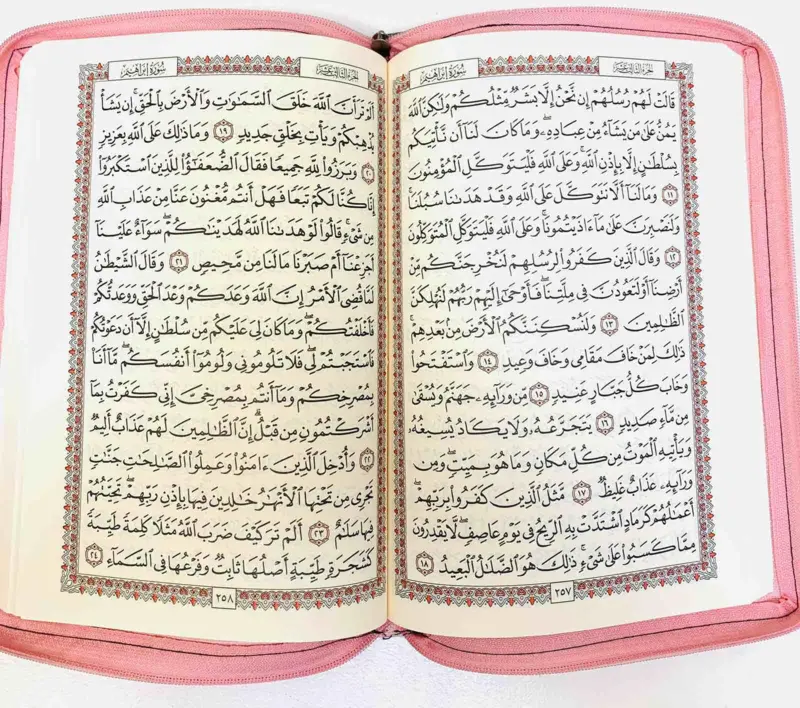 سورة إبراهيم
الجزء الثالث عشر
قَالَتْ لَهُمْ رُسُلُهُمْ إِن نَّحْنُ إِلَّا بَشَرٌ مِّثْلُكُمْ وَلَٰكِنَّ ٱللَّهَ
يَمُنُّ عَلَىٰ مَن يَشَآءُ مِنْ عِبَادِهِۦ ۖ وَمَا كَانَ لَنَآ أَن نَّأْتِيَكُم
بِسُلْطَٰنٍ إِلَّا بِإِذْنِ ٱللَّهِ ۚ وَعَلَى ٱللَّهِ فَلْيَتَوَكَّلِ ٱلْمُؤْمِنُونَ
١١ وَمَا لَنَآ أَلَّا نَتَوَكَّلَ عَلَى ٱللَّهِ وَقَدْ هَدَىٰنَا سُبُلَنَا ۚ
وَلَنَصْبِرَنَّ عَلَىٰ مَآ ءَاذَيْتُمُونَا ۚ وَعَلَى ٱللَّهِ فَلْيَتَوَكَّلِ ٱلْمُتَوَكِّلُونَ
١٢ وَقَالَ ٱلَّذِينَ كَفَرُوا۟ لِرُسُلِهِمْ لَنُخْرِجَنَّكُم مِّنْ
أَرْضِنَآ أَوْ لَتَعُودُنَّ فِى مِلَّتِنَا ۖ فَأَوْحَىٰٓ إِلَيْهِمْ رَبُّهُمْ لَنُهْلِكَنَّ
ٱلظَّٰلِمِينَ ١٣ وَلَنُسْكِنَنَّكُمُ ٱلْأَرْضَ مِنۢ بَعْدِهِمْ ۚ
ذَٰلِكَ لِمَنْ خَافَ مَقَامِى وَخَافَ وَعِيدِ ١٤ وَٱسْتَفْتَحُوا۟
وَخَابَ كُلُّ جَبَّارٍ عَنِيدٍ ١٥ مِّن وَرَآئِهِۦ جَهَنَّمُ وَيُسْقَىٰ
مِن مَّآءٍ صَدِيدٍ ١٦ يَتَجَرَّعُهُۥ وَلَا يَكَادُ يُسِيغُهُۥ
وَيَأْتِيهِ ٱلْمَوْتُ مِن كُلِّ مَكَانٍ وَمَا هُوَ بِمَيِّتٍ ۖ وَمِن
وَرَآئِهِۦ عَذَابٌ غَلِيظٌ ١٧ مَّثَلُ ٱلَّذِينَ كَفَرُوا۟ بِرَبِّهِمْ ۖ
أَعْمَٰلُهُمْ كَرَمَادٍ ٱشْتَدَّتْ بِهِ ٱلرِّيحُ فِى يَوْمٍ عَاصِفٍ ۖ لَّا يَقْدِرُونَ
مِمَّا كَسَبُوا۟ عَلَىٰ شَىْءٍ ۚ ذَٰلِكَ هُوَ ٱلضَّلَٰلُ ٱلْبَعِيدُ ١٨
٢٥٧
الجزء الثالث عشر
سورة إبراهيم
أَلَمْ تَرَ أَنَّ ٱللَّهَ خَلَقَ ٱلسَّمَٰوَٰتِ وَٱلْأَرْضَ بِٱلْحَقِّ ۚ إِن يَشَأْ
يُذْهِبْكُمْ وَيَأْتِ بِخَلْقٍ جَدِيدٍ ١٩ وَمَا ذَٰلِكَ عَلَى ٱللَّهِ بِعَزِيزٍ
٢٠ وَبَرَزُوا۟ لِلَّهِ جَمِيعًا فَقَالَ ٱلضُّعَفَٰٓؤُا۟ لِلَّذِينَ ٱسْتَكْبَرُوٓا۟
إِنَّا كُنَّا لَكُمْ تَبَعًا فَهَلْ أَنتُم مُّغْنُونَ عَنَّا مِنْ عَذَابِ ٱللَّهِ
مِن شَىْءٍ ۚ قَالُوا۟ لَوْ هَدَىٰنَا ٱللَّهُ لَهَدَيْنَٰكُمْ ۖ سَوَآءٌ عَلَيْنَآ
أَجَزِعْنَآ أَمْ صَبَرْنَا مَا لَنَا مِن مَّحِيصٍ ٢١ وَقَالَ ٱلشَّيْطَٰنُ
لَمَّا قُضِىَ ٱلْأَمْرُ إِنَّ ٱللَّهَ وَعَدَكُمْ وَعْدَ ٱلْحَقِّ وَوَعَدتُّكُمْ
فَأَخْلَفْتُكُمْ ۖ وَمَا كَانَ لِىَ عَلَيْكُم مِّن سُلْطَٰنٍ إِلَّآ أَن دَعَوْتُكُمْ
فَٱسْتَجَبْتُمْ لِى ۖ فَلَا تَلُومُونِى وَلُومُوٓا۟ أَنفُسَكُم ۖ مَّآ أَنَا۠
بِمُصْرِخِكُمْ وَمَآ أَنتُم بِمُصْرِخِىَّ ۖ إِنِّى كَفَرْتُ بِمَآ
أَشْرَكْتُمُونِ مِن قَبْلُ ۗ إِنَّ ٱلظَّٰلِمِينَ لَهُمْ عَذَابٌ أَلِيمٌ
٢٢ وَأُدْخِلَ ٱلَّذِينَ ءَامَنُوا۟ وَعَمِلُوا۟ ٱلصَّٰلِحَٰتِ جَنَّٰتٍ
تَجْرِى مِن تَحْتِهَا ٱلْأَنْهَٰرُ خَٰلِدِينَ فِيهَا بِإِذْنِ رَبِّهِمْ ۖ تَحِيَّتُهُمْ
فِيهَا سَلَٰمٌ ٢٣ أَلَمْ تَرَ كَيْفَ ضَرَبَ ٱللَّهُ مَثَلًا كَلِمَةً طَيِّبَةً
كَشَجَرَةٍ طَيِّبَةٍ أَصْلُهَا ثَابِتٌ وَفَرْعُهَا فِى ٱلسَّمَآءِ ٢٤
٢٥٨